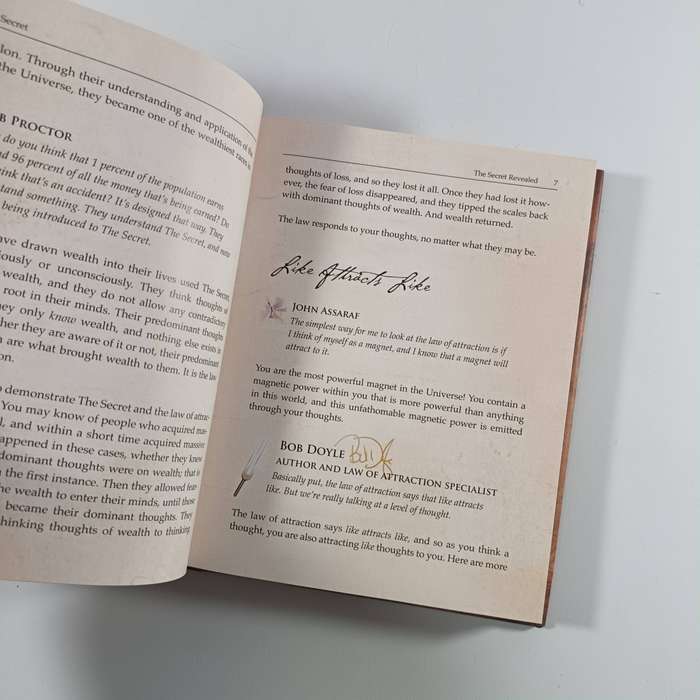 Secret
lon. Through their understanding and application of the
the Universe, they became one of the wealthiest races in
B PROCTOR
do you think that 1 percent of the population earns
nd 96 percent of all the money that's being earned? Do
ink that's an accident? It's designed that way. They
stand something. They understand The Secret, and now
being introduced to The Secret.
ave drawn wealth into their lives used The Secret
iously or unconsciously. They think thoughts of
wealth, and they do not allow any contradictory
root in their minds. Their predominant thoughts
hey only know wealth, and nothing else exists in
her they are aware of it or not, their predominant
are what brought wealth to them. It is the law
on.
o demonstrate The Secret and the law of attrac-
You may know of people who acquired mas-
l, and within a short time acquired massive
appened in these cases, whether they knew
dominant thoughts were on wealth; that is
the first instance. Then they allowed fear-
the wealth to enter their minds, until those
became their dominant thoughts. They
thinking thoughts of wealth to thinking
The Secret Revealed 7
thoughts of loss, and so they lost it all. Once they had lost it how-
ever, the fear of loss disappeared, and they tipped the scales back
with dominant thoughts of wealth. And wealth returned.
The law responds to your thoughts, no matter what they may be.
Like Attracts Like
JOHN ASSARAF
The simplest way for me to look at the law of attraction is if
I think of myself as a magnet, and I know that a magnet will
attract to it.
You are the most powerful magnet in the Universe! You contain a
magnetic power within you that is more powerful than anything
in this world, and this unfathomable magnetic power is emitted
through your thoughts.
BOB DOYLE
AUTHOR AND LAW OF ATTRACTION SPECIALIST
Basically put, the law of attraction says that like attracts
like. But we're really talking at a level of thought.
The law of attraction says like attracts like, and so as you think a
thought, you are also attracting like thoughts to you. Here are more